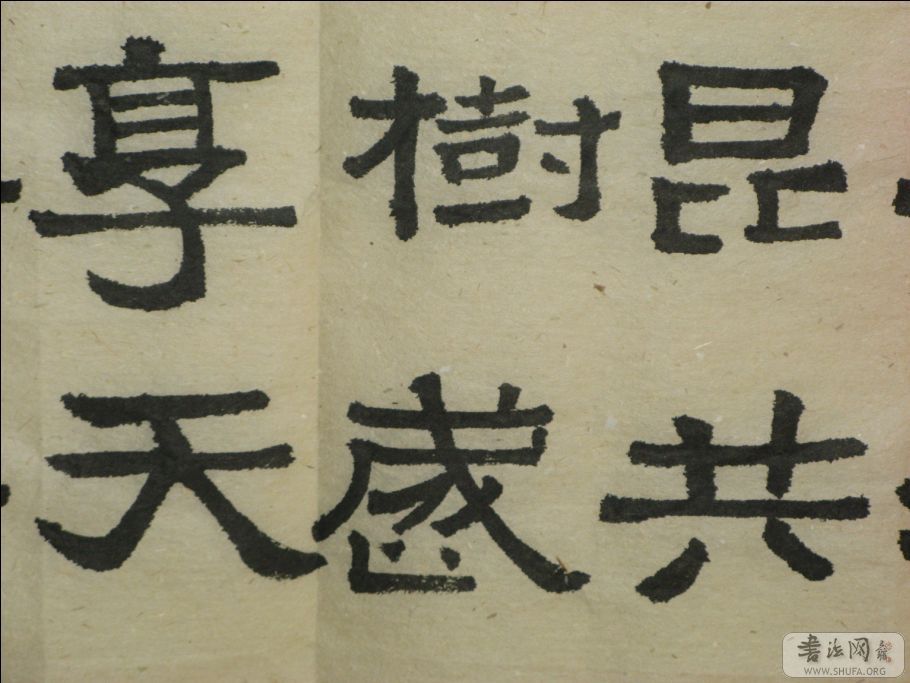 昆共
樹
享天
書法网
WWW.SHUFA.ORG